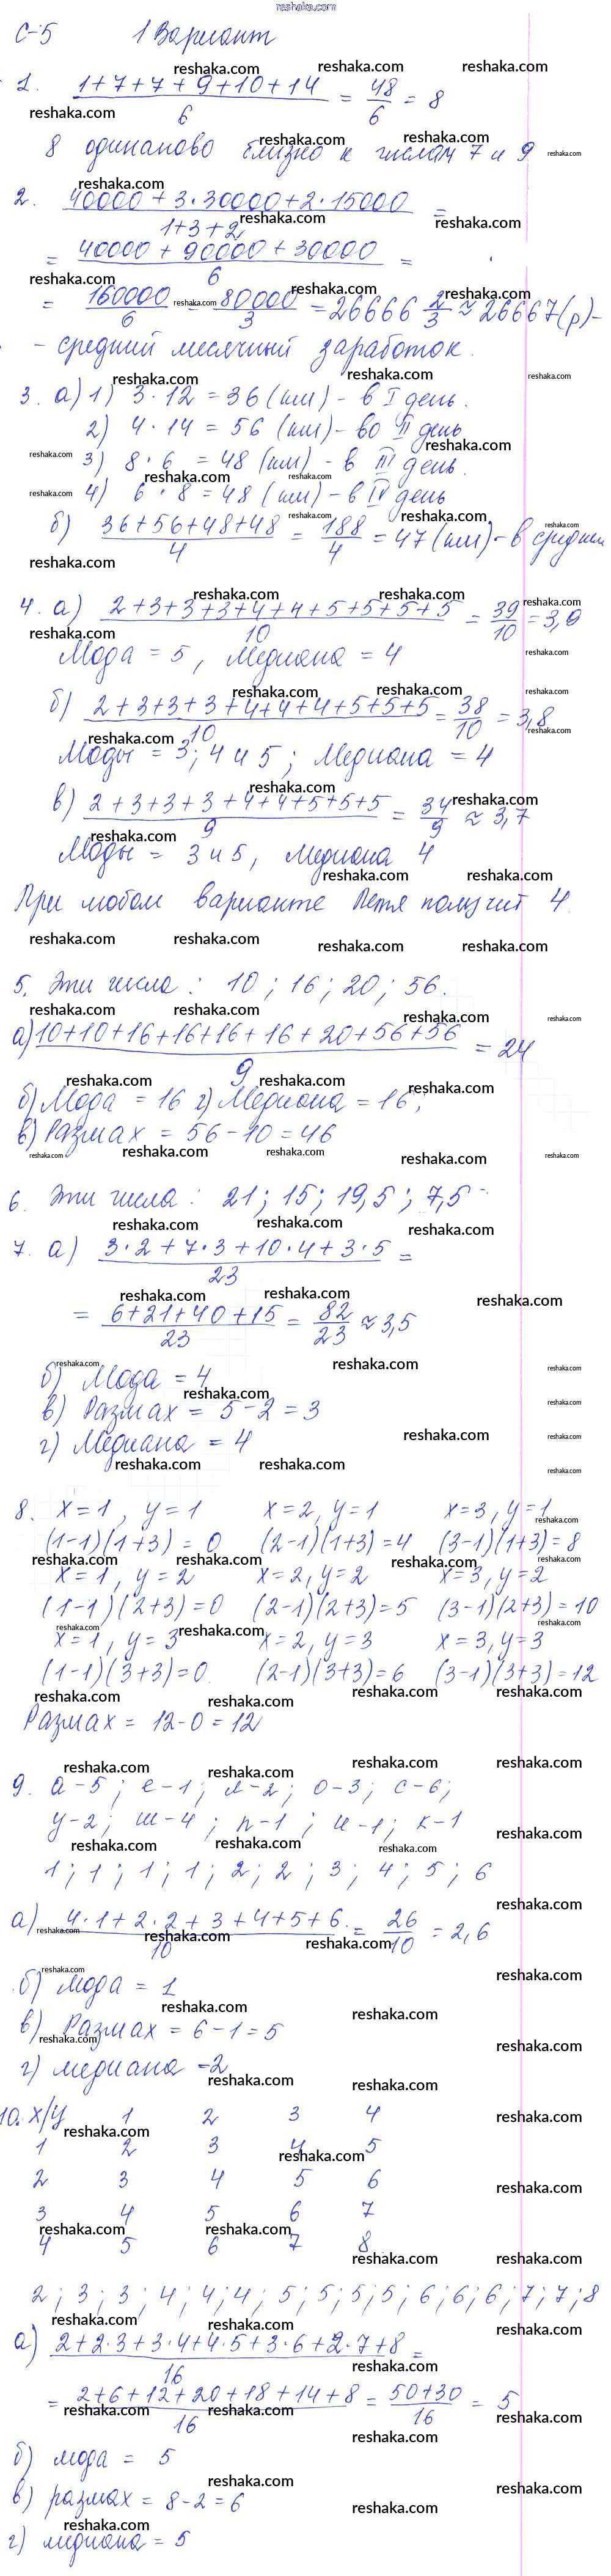 reshaka.com
С-5 1 Вариант
1. (1+7+7+9+10+14)/6 = 48/6 = 8
8 одинаково близко к числам 7 и 9
2. (40000+3·30000+2·15000)/(1+3+2) =
= (40000+90000+30000)/6 =
= 160000/6 = 80000/3 = 26666 2/3 ≈ 26667(р)-
- средний месячный заработок.
3. а) 1) 3·12 = 36 (км) - в I день.
2) 4·14 = 56 (км) - во II день
3) 8·6 = 48 (км) - в III день.
4) 6·8 = 48 (км) - в IV день
б) (36+56+48+48)/4 = 188/4 = 47 (км) - в средним
4. а) (2+3+3+3+4+4+5+5+5+5)/10 = 39/10 = 3,9
Мода = 5, Медиана = 4
б) (2+3+3+3+4+4+4+5+5+5)/10 = 38/10 = 3,8
Моды = 3; 4 и 5; Медиана = 4
в) (2+3+3+3+4+4+5+5+5)/9 = 34/9 ≈ 3,7
Моды = 3 и 5, Медиана 4
При любом варианте Петя получит 4.
5. Эти числа: 10; 16; 20; 56.
а) (10+10+16+16+16+16+20+56+56)/9 = 24
б) Мода = 16 г) Медиана = 16;
в) Размах = 56-10 = 46
6. Эти числа: 21; 15; 19,5; 7,5
7. а) (3·2+7·3+10·4+3·5)/23 =
= (6+21+40+15)/23 = 82/23 ≈ 3,5
б) Мода = 4
в) Размах = 5-2 = 3
г) Медиана = 4
8. x=1, y=1 x=2, y=1 x=3, y=1
(1-1)(1+3) = 0 (2-1)(1+3)=4 (3-1)(1+3)=8
x=1, y=2 x=2, y=2 x=3, y=2
(1-1)(2+3)=0 (2-1)(2+3)=5 (3-1)(2+3)=10
x=1, y=3 x=2, y=3 x=3, y=3
(1-1)(3+3)=0. (2-1)(3+3)=6 (3-1)(3+3)=12
Размах = 12-0 = 12
9. а-5; е-1; л-2; о-3; с-6;
у-2; ш-4; п-1; и-1; к-1
1; 1; 1; 1; 2; 2; 3; 4; 5; 6
а) (4·1+2·2+3+4+5+6)/10 = 26/10 = 2,6
б) мода = 1
в) Размах = 6-1=5
г) медиана =2
10. x/y 1 2 3 4
1 2 3 4 5
2 3 4 5 6
3 4 5 6 7
4 5 6 7 8
2; 3; 3; 4; 4; 4; 5; 5; 5; 5; 6; 6; 6; 7; 7; 8
а) (2+2·3+3·4+4·5+3·6+2·7+8)/16 =
= (2+6+12+20+18+14+8)/16 = (50+30)/16 = 5
б) мода = 5
в) размах = 8-2 = 6
г) медиана = 5